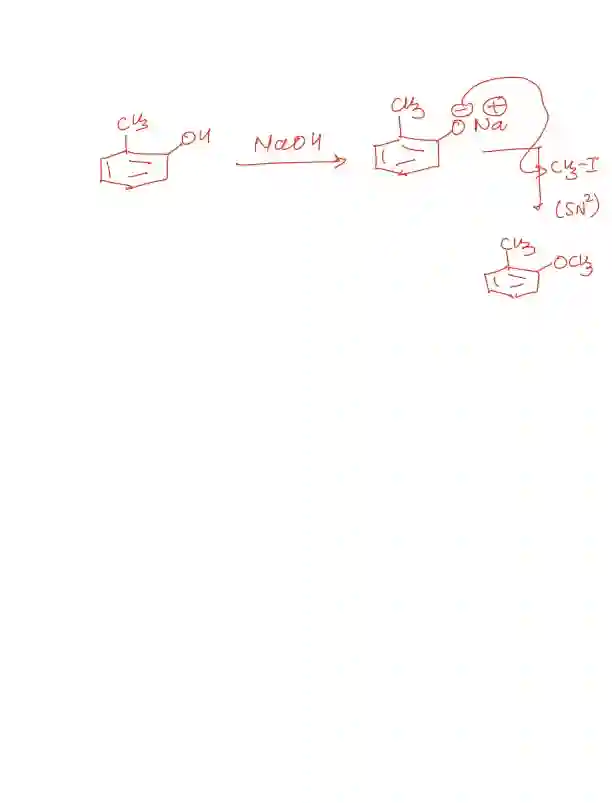 CH3 OH
NaOH
CH3 ⊖ ⊕
O Na
CH3-I
(SN²)
CH3
OCH3